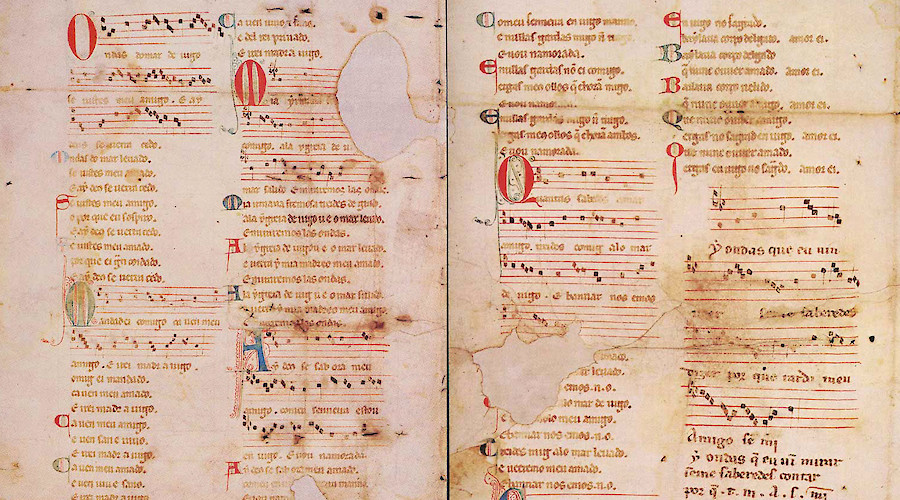 Ondas do mar de uigo
se uistes meu amigo. E ay
deus se uerra cedo.
Ondas do mar leuado.
se uistes meu amado.
E ay deus se uerra cedo.
Se uistes meu amigo.
o por que eu sospiro.
E ay deus se uerra cedo.
Se uistes meu amado.
por que ei gran coidado.
E ay deus se uerra cedo.
Mandad ei comigo ca uen meu
amigo. E irei madr a uigo.
comig ei mandado.
ca uen meu amado.
E irei madr a uigo.
Ca uen meu amigo.
e uen san e uiuo.
E irei madr a uigo.
Ca uen meu amado.
e uen uiuo e sano.
E irei madr a uigo.
Ca uen san e uiuo.
e del rei amigo
E irei madr a uigo.
Ca uen uiuo e sano.
e del rei priuado.
E irei madr a uigo.
Mia yrmana
comigo. ala ygreia de u
mar salido E miraremos las ondas.
Mia irmana fremosa treides de grado.
ala ygreia de uigo u e o mar leuado.
E miraremos las ondas.
A la ygreia de uigo u e o mar leuado.
e uerra y mia madre e meu amado.
E miraremos las ondas.
A la ygreia de uig u e o mar salido.
e uerra y mia madre e meu amigo.
E miraremos las ondas.
Ay deus se sab ora meu
amigo. comeu senneira estou
en uigo. E uou namorada.
Ay deus se sab ora meu amado.
comeu senneira en uigo manno.
E uou namorada.
Comeu senneira en uigo manno.
e nullas gardas migo non
E uou namorada.
E nullas gardas non ei comigo.
ergas meus ollos que choran migo.
E uou namorada.
E nullas gardas migo non trago.
ergas meus ollos que choran ambos.
E uou namorada.
Quantas sabedes amar
amigo. treides comig alo mar
de uigo. E bannar nos emos
amado.
mar leuado.
emos. n. o.
alo mar de uigo.
meu amigo.
E bannar nos emos. n. o.
Treides mig alo mar leuado.
e ueeremo meu amado.
En uigo no sagrado.
baylaua corpo delgado. amor ei.
Baylaua corpo delgado
que nunc ouuer amado. amor ei.
Bailaua corpo uelido.
que nunc ouuer amigo. amor ei.
Que nunc ouuer amigo.
ergas no sagrad en uigo. amor ei.
Que nunc ouuer amado.
ergas en uigo no sagrado. amor ei.
Ay ondas que eu uin
ueer se me saberedes
dizer por que tarda meu
Amigo sen mi
Ay ondas que eu uin mirar
se me saberedes contar
por que. t. m. A. s. mi